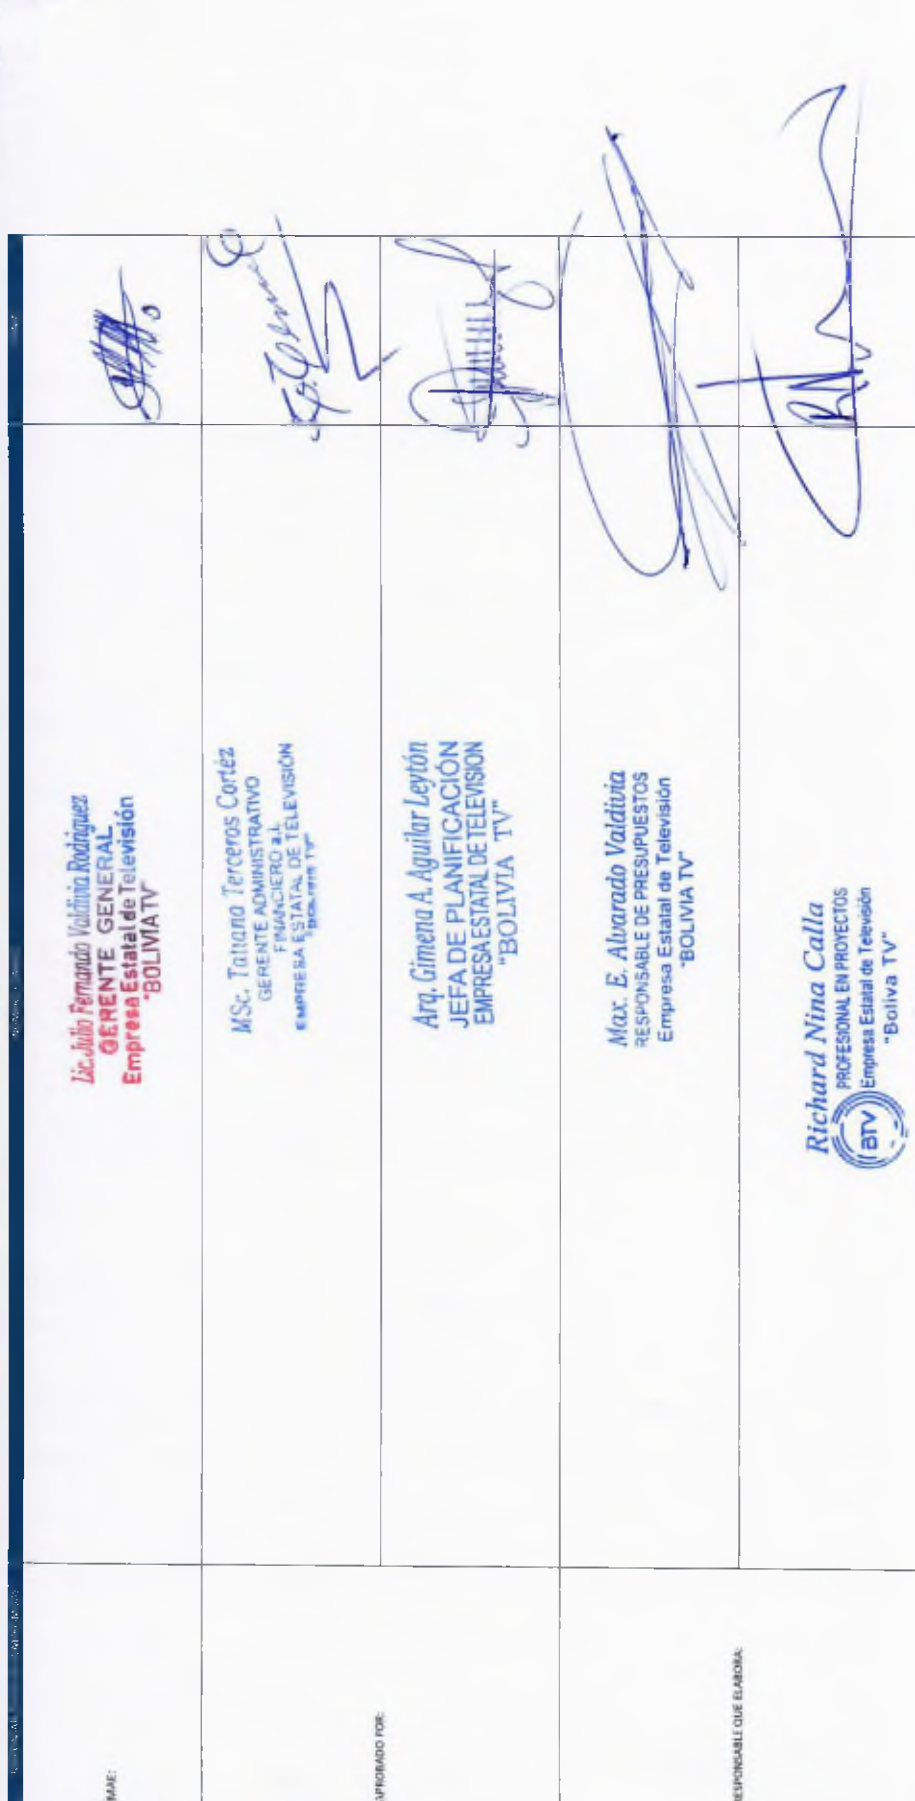 MAE:
Lic. Julio Fernando Valdivia Rodriguez
GERENTE GENERAL
Empresa Estatal de Televisión
"BOLIVIA TV"
APROBADO POR:
MSc. Tatiana Terceros Cortéz
GERENTE ADMINISTRATIVO
FINANCIERO a.i.
EMPRESA ESTATAL DE TELEVISIÓN
"BOLIVIA TV"
Arq. Gimena A. Aguilar Leytón
JEFA DE PLANIFICACIÓN
EMPRESA ESTATAL DE TELEVISION
"BOLIVIA TV"
RESPONSABLE QUE ELABORA:
Max. E. Alvarado Valdivia
RESPONSABLE DE PRESUPUESTOS
Empresa Estatal de Televisión
"BOLIVIA TV"
Richard Nina Calla
PROFESIONAL EN PROYECTOS
Empresa Estatal de Televisión
"Boliva TV"
BTV